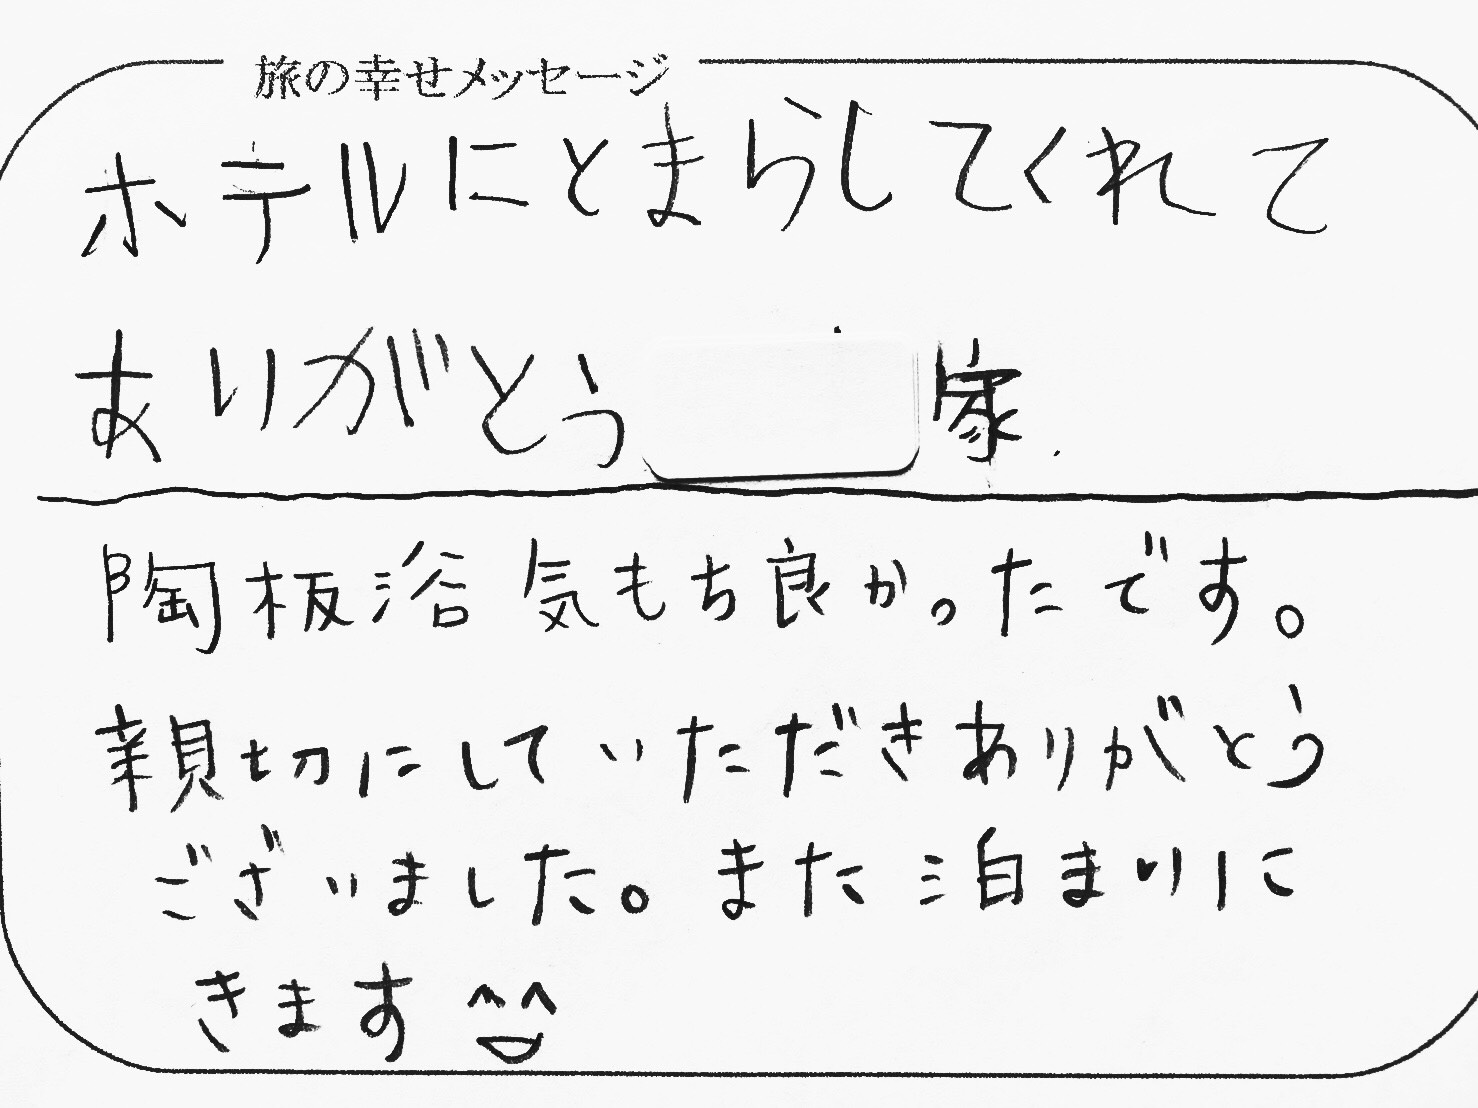 旅の幸せメッセージ
ホテルにとまらしてくれて
ありがとう 家
陶板浴 気もち良かったです。
親切にしていただきありがとう
ございました。また泊まりに
きます